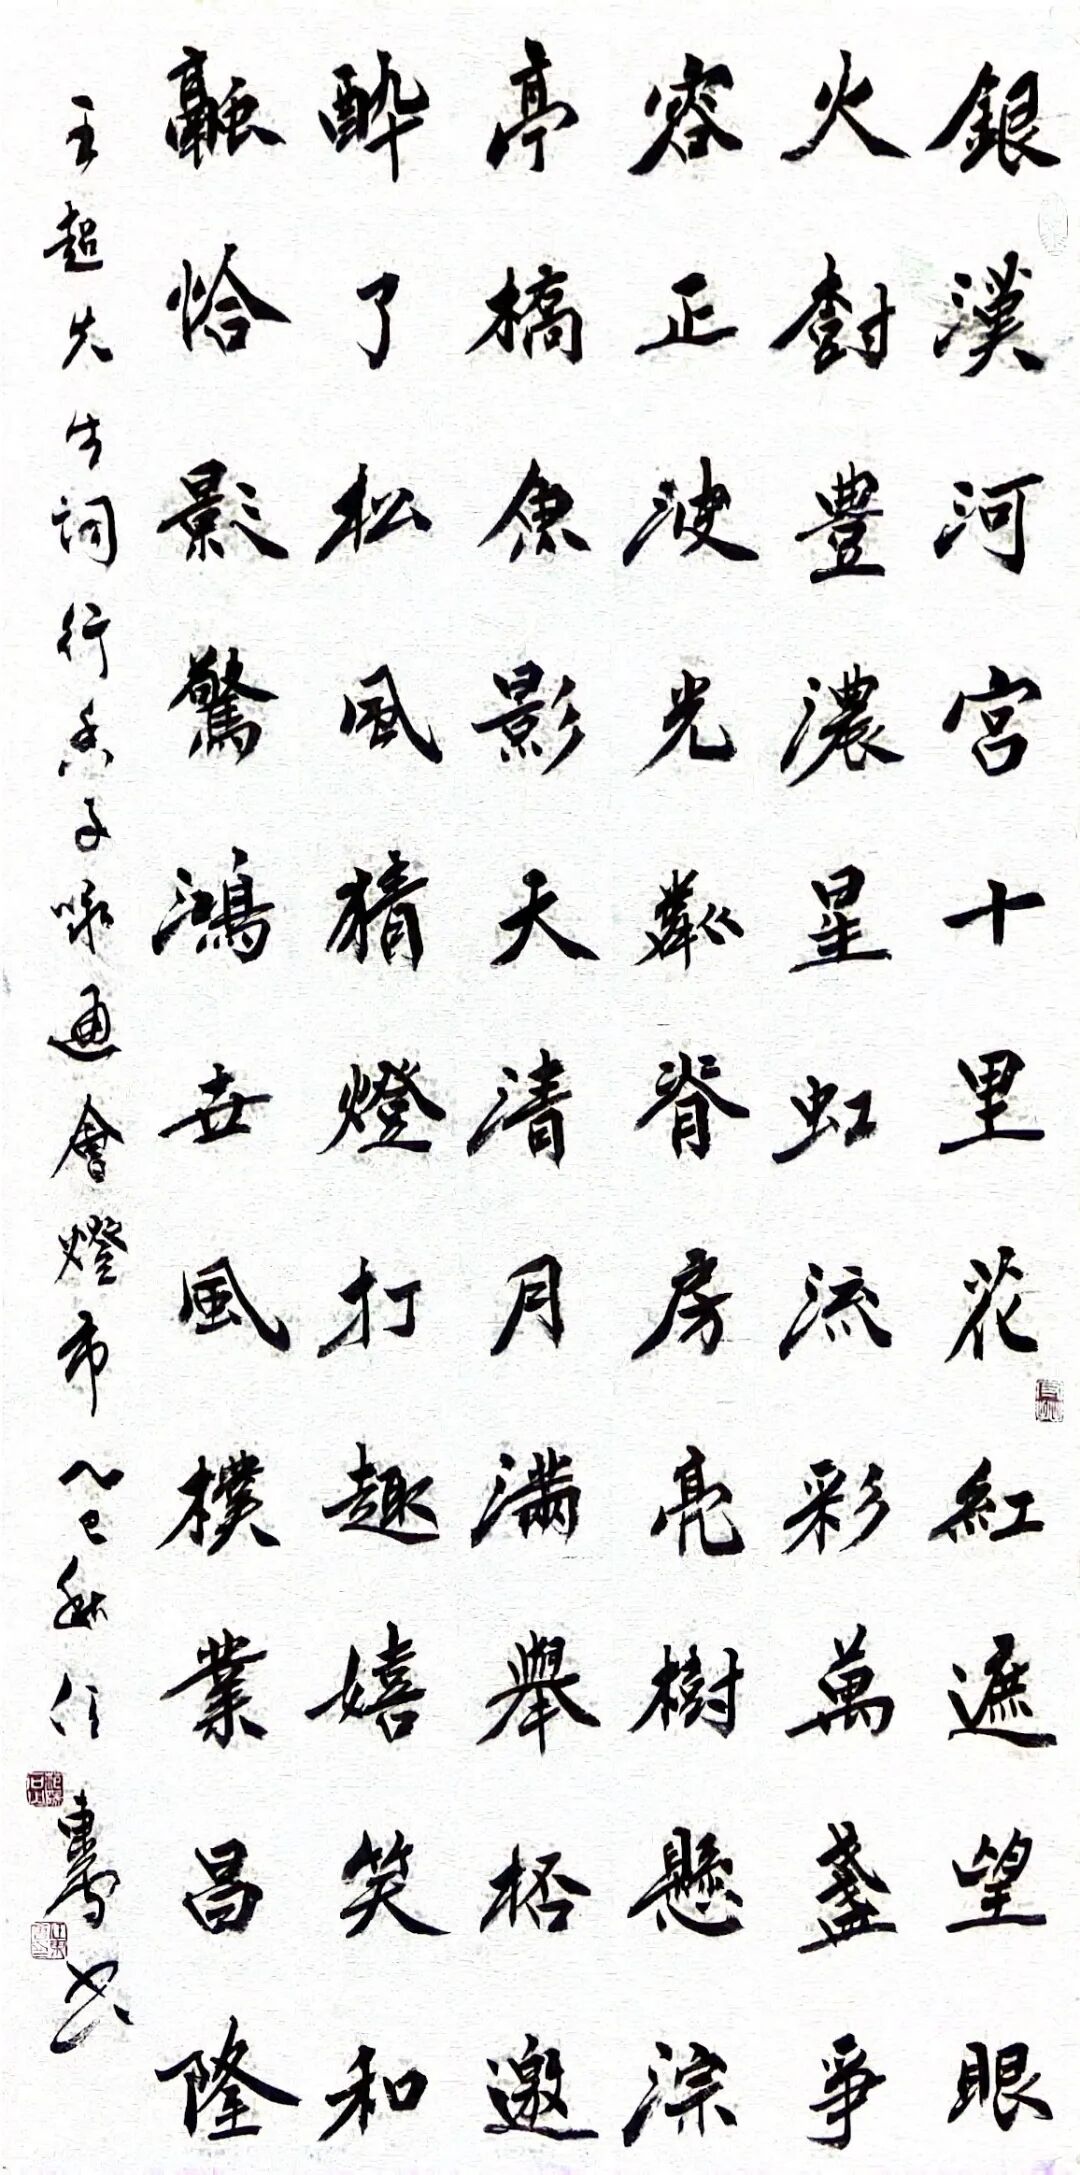 銀漢河宮十里花紅遮望眼
火樹豊濃星虹流彩萬盞爭
容正波光粼脊房亮樹懸淙
亭橋魚影天清月滿舉杯邀
醉了松風猜燈打趣嬉笑和
融恰影驚鴻世風樸業昌隆
王超先生詞行香子咏通會燈市乙巳秋書